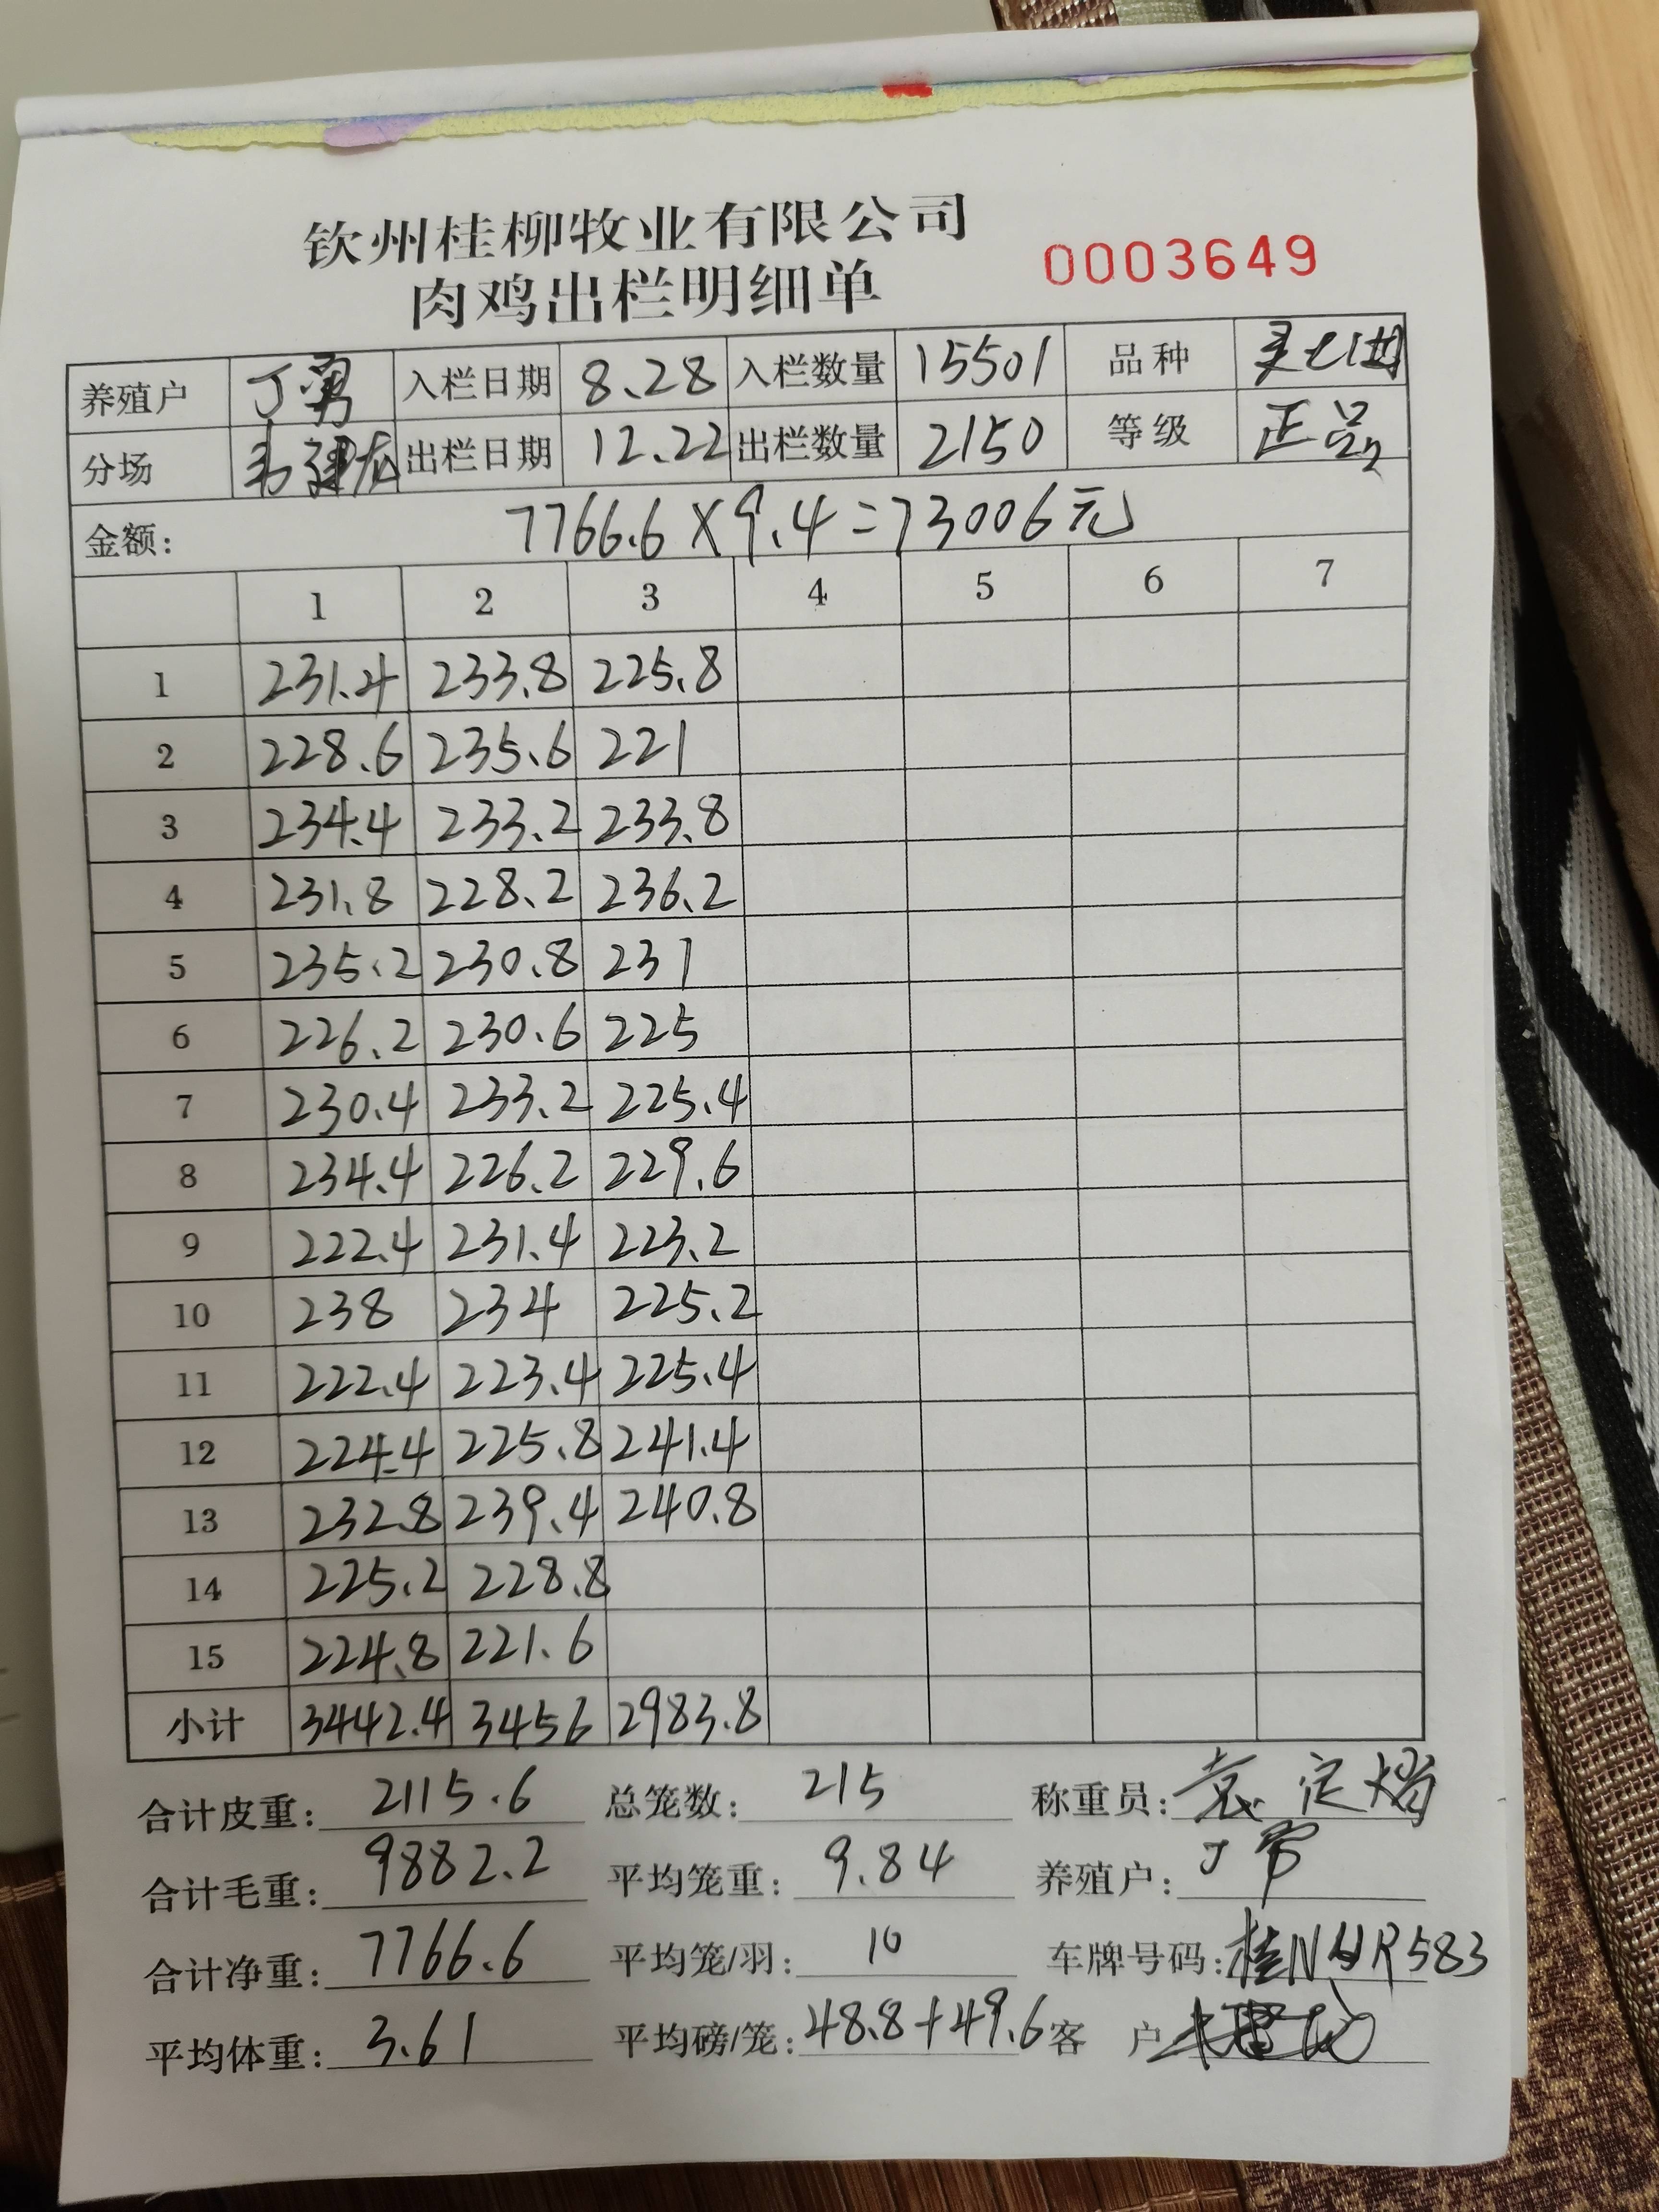 钦州桂柳牧业有限公司
肉鸡出栏明细单 0003649
养殖户 丁勇 入栏日期 8.28 入栏数量 15501 品种
分场 韦建龙 出栏日期 12.22 出栏数量 2150 等级 正品
金额: 7766.6×9.4=73006元
1 2 3 4 5 6 7
1 231.4 233.8 225.8
2 228.6 235.6 221
3 234.4 233.2 233.8
4 231.8 228.2 236.2
5 235.2 230.8 231
6 226.2 230.6 225
7 230.4 233.2 225.4
8 234.4 226.2 229.6
9 222.4 231.4 223.2
10 238 234 225.2
11 222.4 223.4 225.4
12 224.4 225.8 241.4
13 232.8 239.4 240.8
14 225.2 228.8
15 224.8 221.6
小计 3442.4 3456 2983.8
合计皮重: 2115.6 总笼数: 215 称重员: 袁定
合计毛重: 9882.2 平均笼重: 9.84 养殖户: 丁勇
合计净重: 7766.6 平均笼/羽: 10 车牌号码: 桂N R583
平均体重: 3.61 平均磅/笼: 48.8+49.6 客户